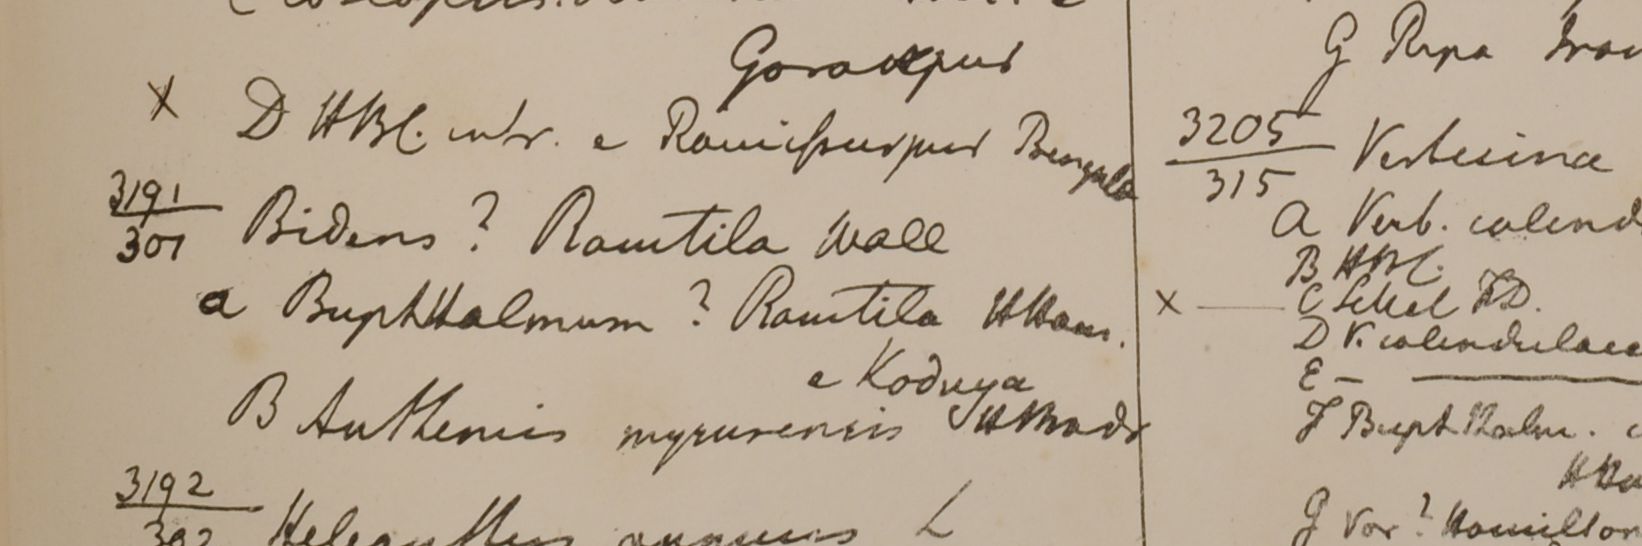 Gorakpur
X D HBC intr. e Ramisseurpur Bengala
3191
301 Bidens ? Ramtila Wall
a Buphthalmum ? Ramtila HHam.
e Koduya
B Anthemis mysurensis HMadr
3192
302 Helianthus annuus L
G Rupa
3205
315 Verbesina
a Verb. calend
B HBC.
X — C
D V. calendulacea
E —
F Buphthalm.
G Var? Hamilton